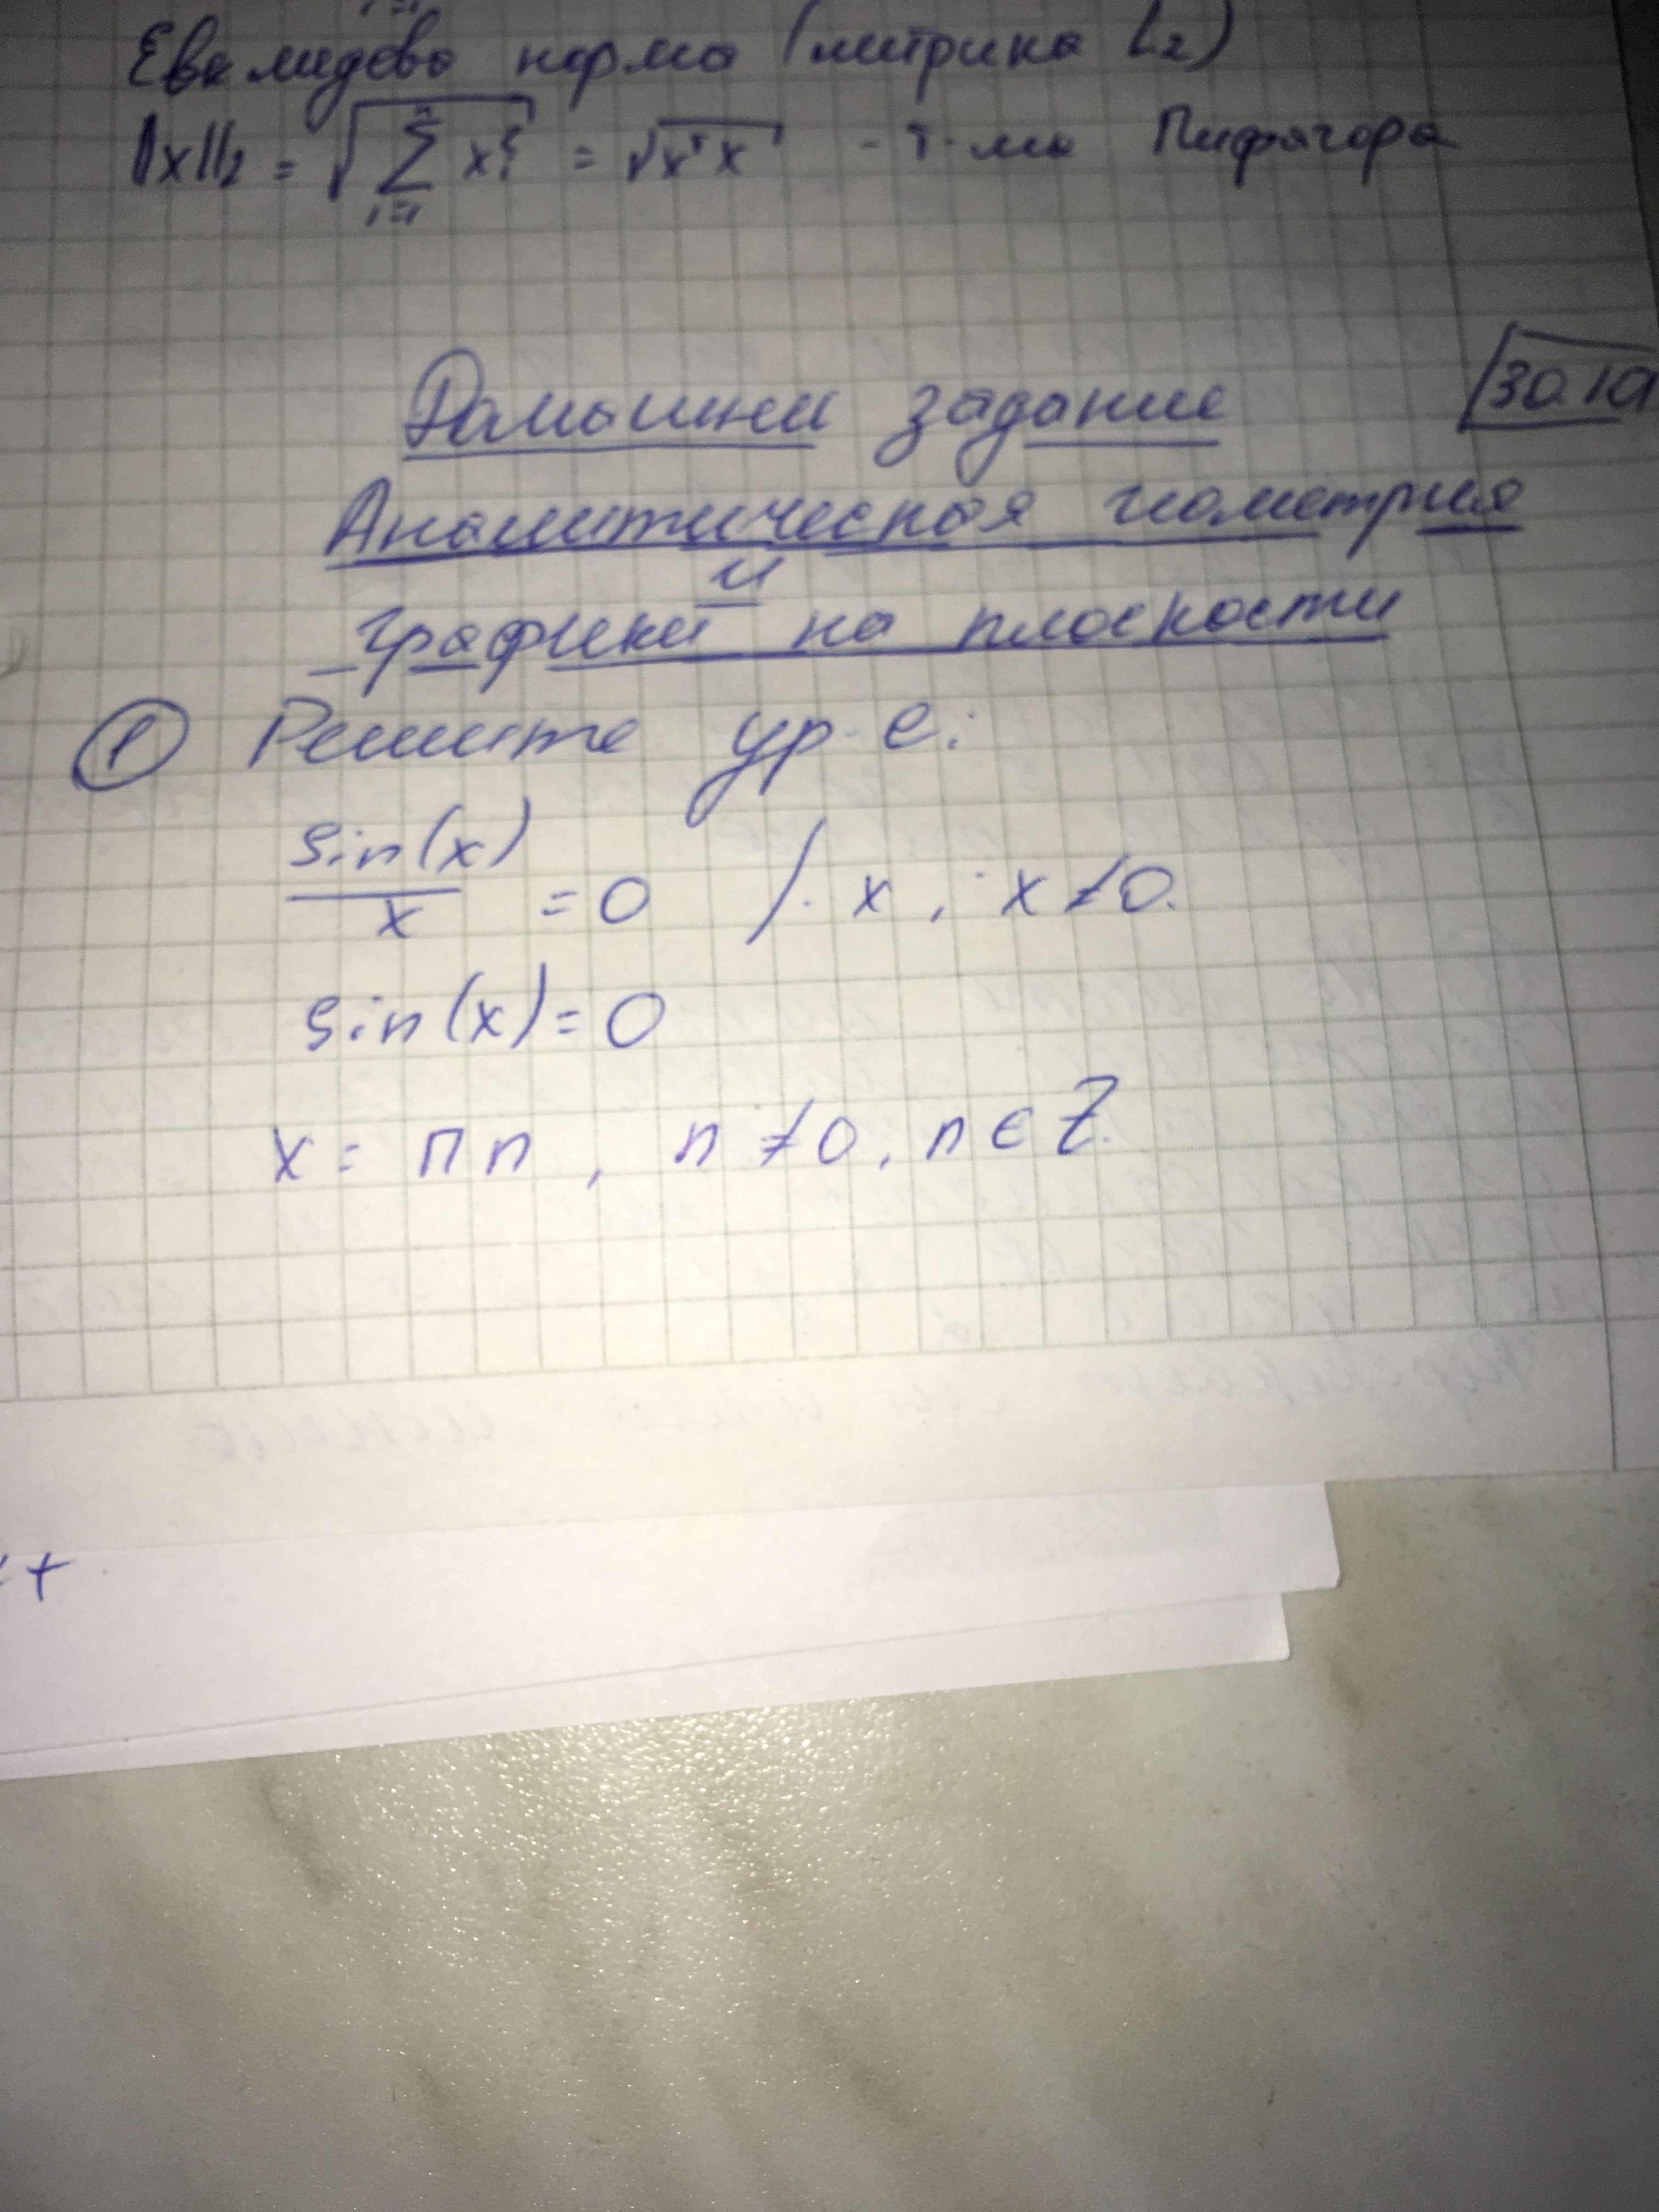 Евклидева норма (метрика L₂)
||x||₂ = √(∑ᵢ₌₁ⁿ xᵢ²) = √(xᵀx) - т-ма Пифагора
30.10
Домашнеи задание
Аналитическая геометрия
и
графики на плоскости
① Решите ур-е:
sin(x)/x = 0 /· x, x ≠ 0.
sin(x) = 0
x = πn, n ≠ 0, n ∈ Z.
+